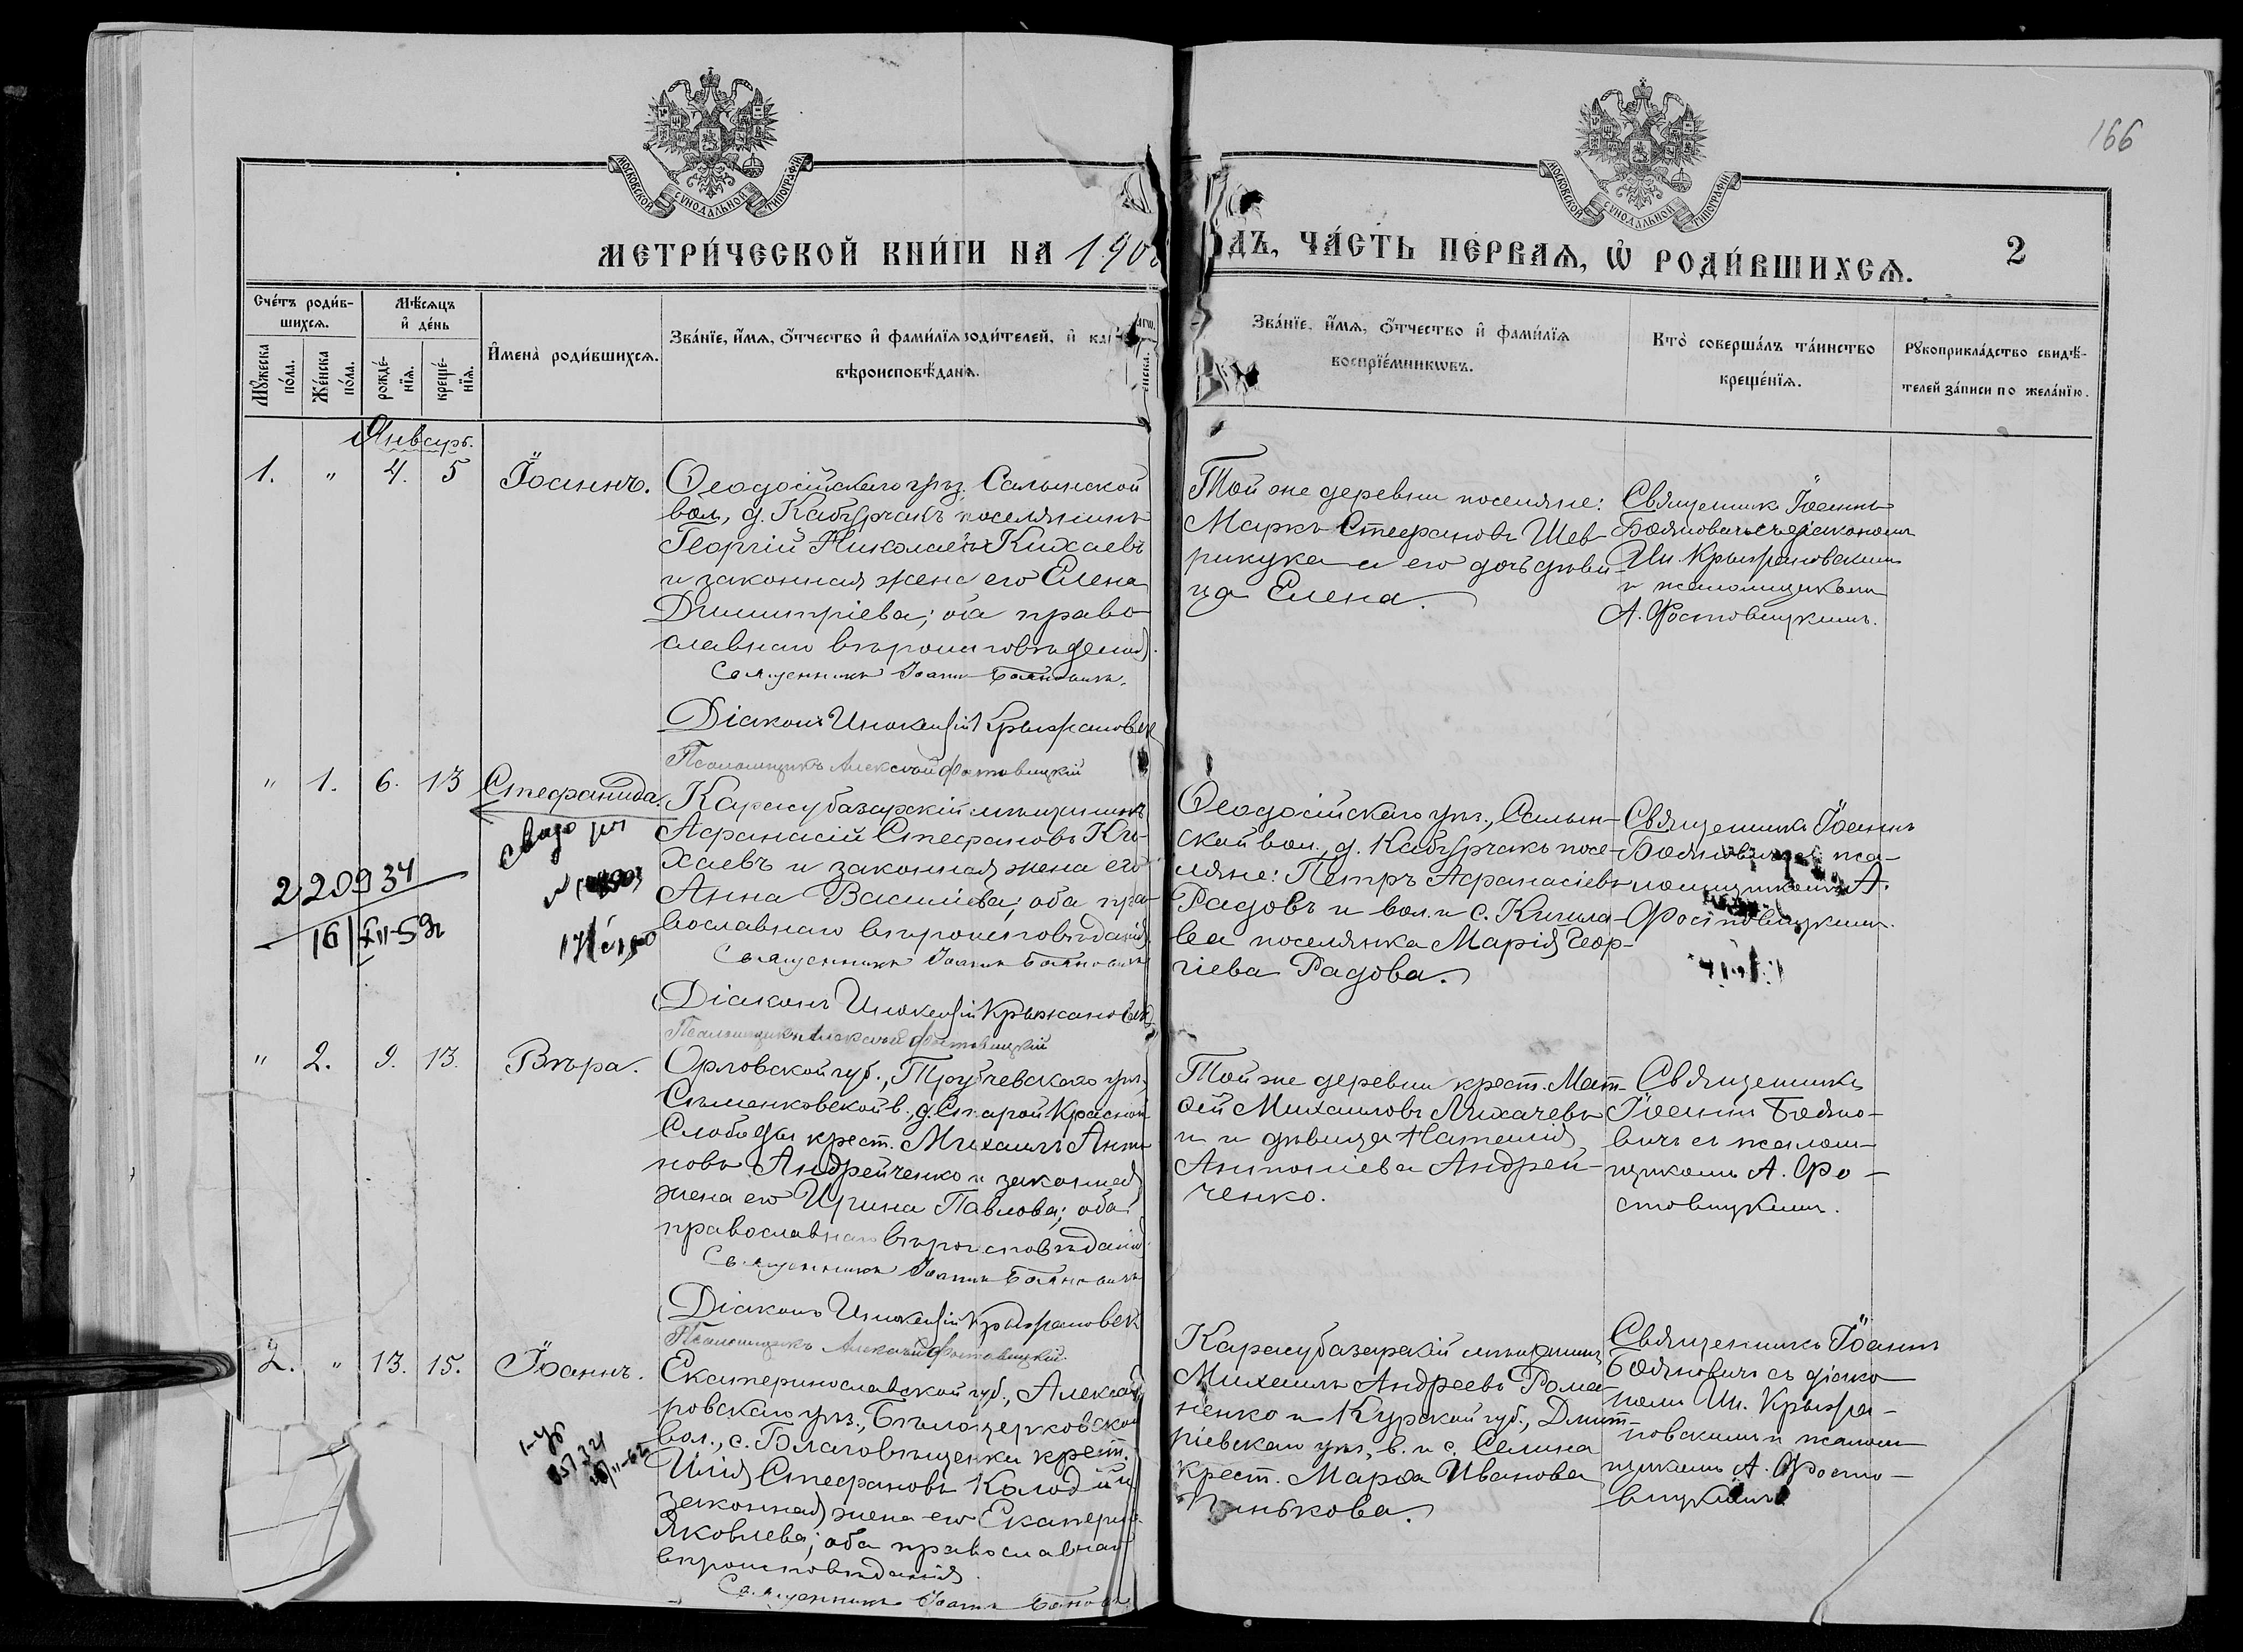 166
МОСКОВСКОЙ СѴНОДАЛЬНОЙ ТИПОГРАФІИ
МОСКОВСКОЙ СѴНОДАЛЬНОЙ ТИПОГРАФІИ
МЕТРИ́ЧЕСКОЙ КНИ́ГИ НА 190
ДЪ, ЧА́СТЬ ПЕ́РВАѦ, Ѡ҆ РОДИ́ВШИХСѦ.
2
Сче́тъ роди́в-
шихсѧ.
Мꙋ́жеска по́ла.
Же́нска по́ла.
Мѣ́сѧцъ
и҆ де́нь
рожде́-
нїѧ.
креще́-
нїѧ.
И҆мена̀ роди́вшихсѧ.
Зва́нїе, и҆́мѧ, ѻ҆́тчество и҆ фами́лїѧ роди́телей, и҆ ка
вѣроисповѣ́данїѧ.
Зва́нїе, и҆́мѧ, ѻ҆́тчество и҆ фами́лїѧ
воспрїе́мникѡвъ.
Кто̀ соверша́лъ та́инство
креще́нїѧ.
Рꙋкоприкла́дство свидѣ́-
телей за́писи по жела́нїю.
Январь.
1. " 4. 5 Іоаннъ.
Ѳеодосійскаго уѣз. Салынской
вол., д. Кабурчакъ поселянинъ
Георгій Николаевъ Кихаевъ
и законная жена его Елена
Димитріева; оба право-
славнаго вѣроисповѣданія.
Священникъ Іоаннъ Бояновичъ.
Діаконъ Инокентій Крыжановск
Псаломщикъ Алексѣй Фостовицкій
Той же деревни поселяне:
Маркъ Стефановъ Шев-
рикука и его дочь дѣви-
ца Елена.
Священникъ Іоаннъ
Бояновичъ съ діакономъ
Ин. Крыжановскимъ
и псаломщикомъ
А. Фостовицкимъ.
" 1. 6. 13 Стефанида.
220934
16/XII-59г
Карасубазарскій мѣщанинъ
Афанасій Стефановъ Ки-
хаевъ и законная жена его
Анна Васильева; оба пра-
вославнаго вѣроисповѣданія.
Священникъ Іоаннъ Бояновичъ
Діаконъ Инокентій Крыжановск
Псаломщикъ Алексѣй Фостовицкій
Ѳеодосійскаго уѣз., Салын-
ской вол., д. Кабурчакъ посе-
ляне: Петръ Афанасіевъ
Радовъ и вол. и с. Кишла-
ва поселянка Марія Геор-
гіева Радова.
Священникъ Іоаннъ
Бояновичъ съ пса-
ломщикомъ А.
Фостовицкимъ.
" 2. 9. 13. Вѣра.
Орловской губ., Трубчевскаго уѣз.
Сѣменковской в., д. Старой Красной
Слободы крест. Михаилъ Анто-
новъ Андрейченко и законная
жена его Ирина Павлова; оба
православнаго вѣроисповѣданія.
Священникъ Іоаннъ Бояновичъ
Діаконъ Инокентій Крыжановск
Псаломщикъ Алексѣй Фостовицкій.
Той же деревни крест. Мат-
ѳей Михаиловъ Лихачевъ
и дѣвица Наталія
Антоніева Андрей-
ченко.
Священникъ
Іоаннъ Бояно-
вичъ съ псалом-
щикомъ А. Фо-
стовицкимъ.
2. " 13. 15. Іоаннъ.
Екатеринославской губ., Алексан
ровскаго уѣз., Бѣлоцерковской
вол., с. Благовѣщенки крест.
Илія Стефановъ Колодій и
законная жена его Екатерин
Яковлева; оба православнаго
вѣроисповѣданія.
Священникъ Іоаннъ Бояновичъ
Карасубазарскій мѣщанинъ
Михаилъ Андреевъ Рома-
ненко и Курской губ., Дмит-
ріевскаго уѣз., в. и с. Селина
крест. Марѳа Иванова
нькова.
Священникъ Іоаннъ
Бояновичъ съ діако-
номъ Ин. Крыжа-
новскимъ и псалом-
щикомъ А. Фосто-
вицкимъ.